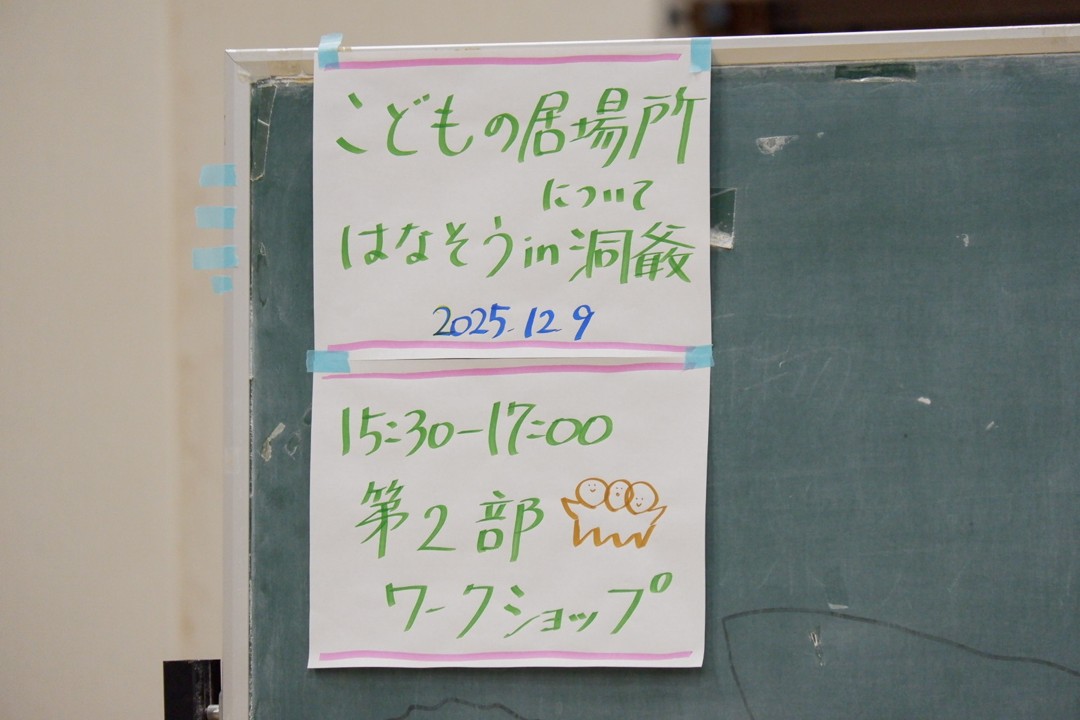 こどもの居場所
について
はなそう in 洞爺
2025.12.9
15:30-17:00
第2部
ワークショップ